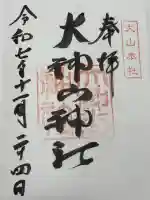 奉拝
大山本社
大神山神社
令和七年十一月二十四日